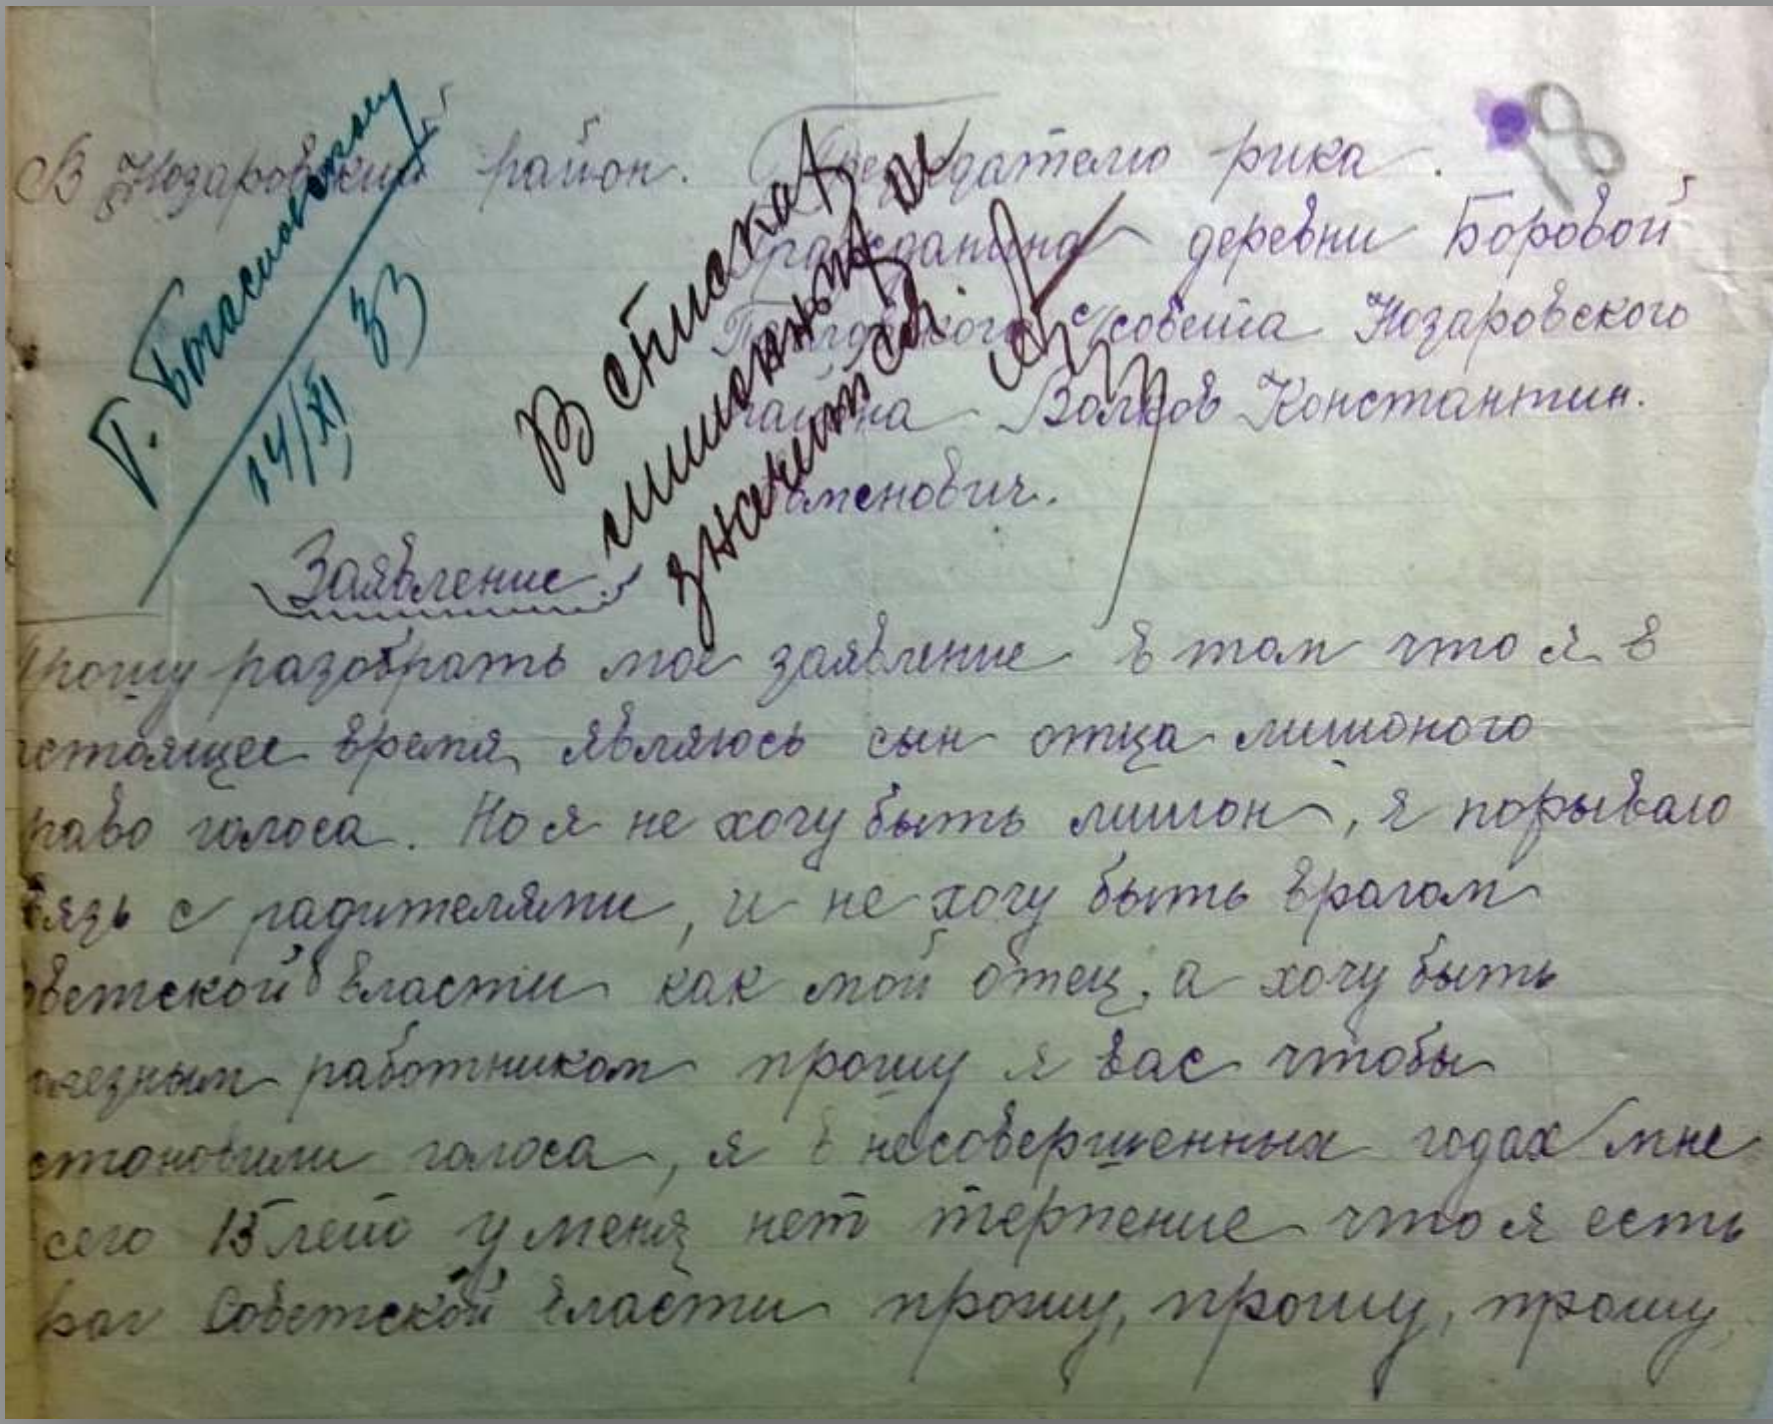 18
В Нозаровский район. Председателю рика.
Гражданина деревни Боровой
с/совета Нозаровского
района Волков Константин.
менович.
Г. Богасловскому
14/XI 33
В списках
лишонных не
значится.
Заявление.
Прошу разобрать мое заявление в том что я в
астоящее время являюсь сын отца лишоного
раво голоса. Но я не хочу быть лишон, я порываю
вязь с радителями, и не хочу быть врагом
оветской власти как мой отец, а хочу быть
олезным работником прошу я вас чтобы
становили голоса, я в несовершенных годах мне
сего 15 лет у меня нет терпение что я есть
враг Советской власти прошу, прошу, прошу,